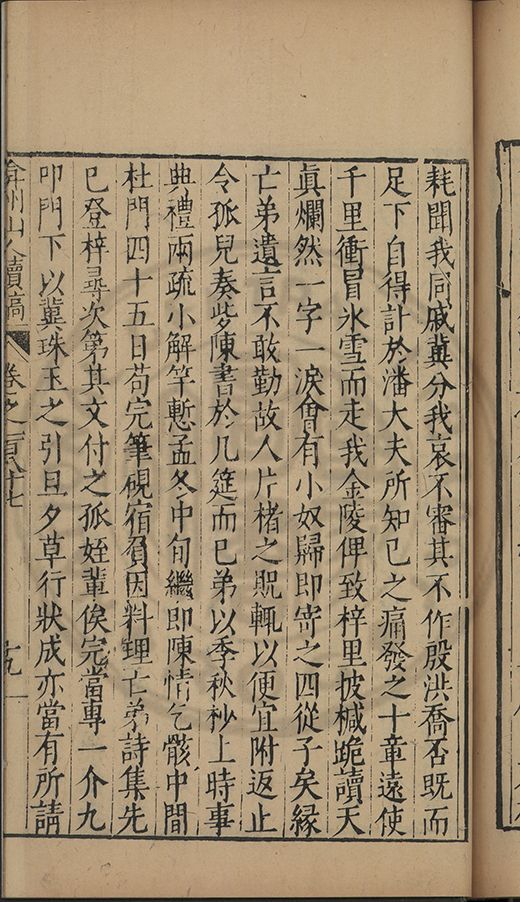 耗聞我同戚冀分我哀不審其不作殷洪喬否既而
足下自得計於潘大夫所知己之痛發之十章遠使
千里衝冐氷雪而走我金陵俾致梓里披椷跪讀天
眞爛然一字一淚會有小奴歸即寄之四從子矣縁
亡弟遺言不敢勤故人片楮之貺輒以便宜附返止
令孤兒奏些陳書於几筵而已弟以季秋杪上時事
典禮兩疏小解竿慙孟冬中旬繼即陳情乞骸中間
杜門四十五日苟完筆硯宿負因料理亡弟詩集先
已登梓尋次第其文付之孤姪輩俟完當專一介九
叩門下以冀珠玉之引旦夕草行狀成亦當有所請
弇州山人續稿 卷之一百八十七 十九